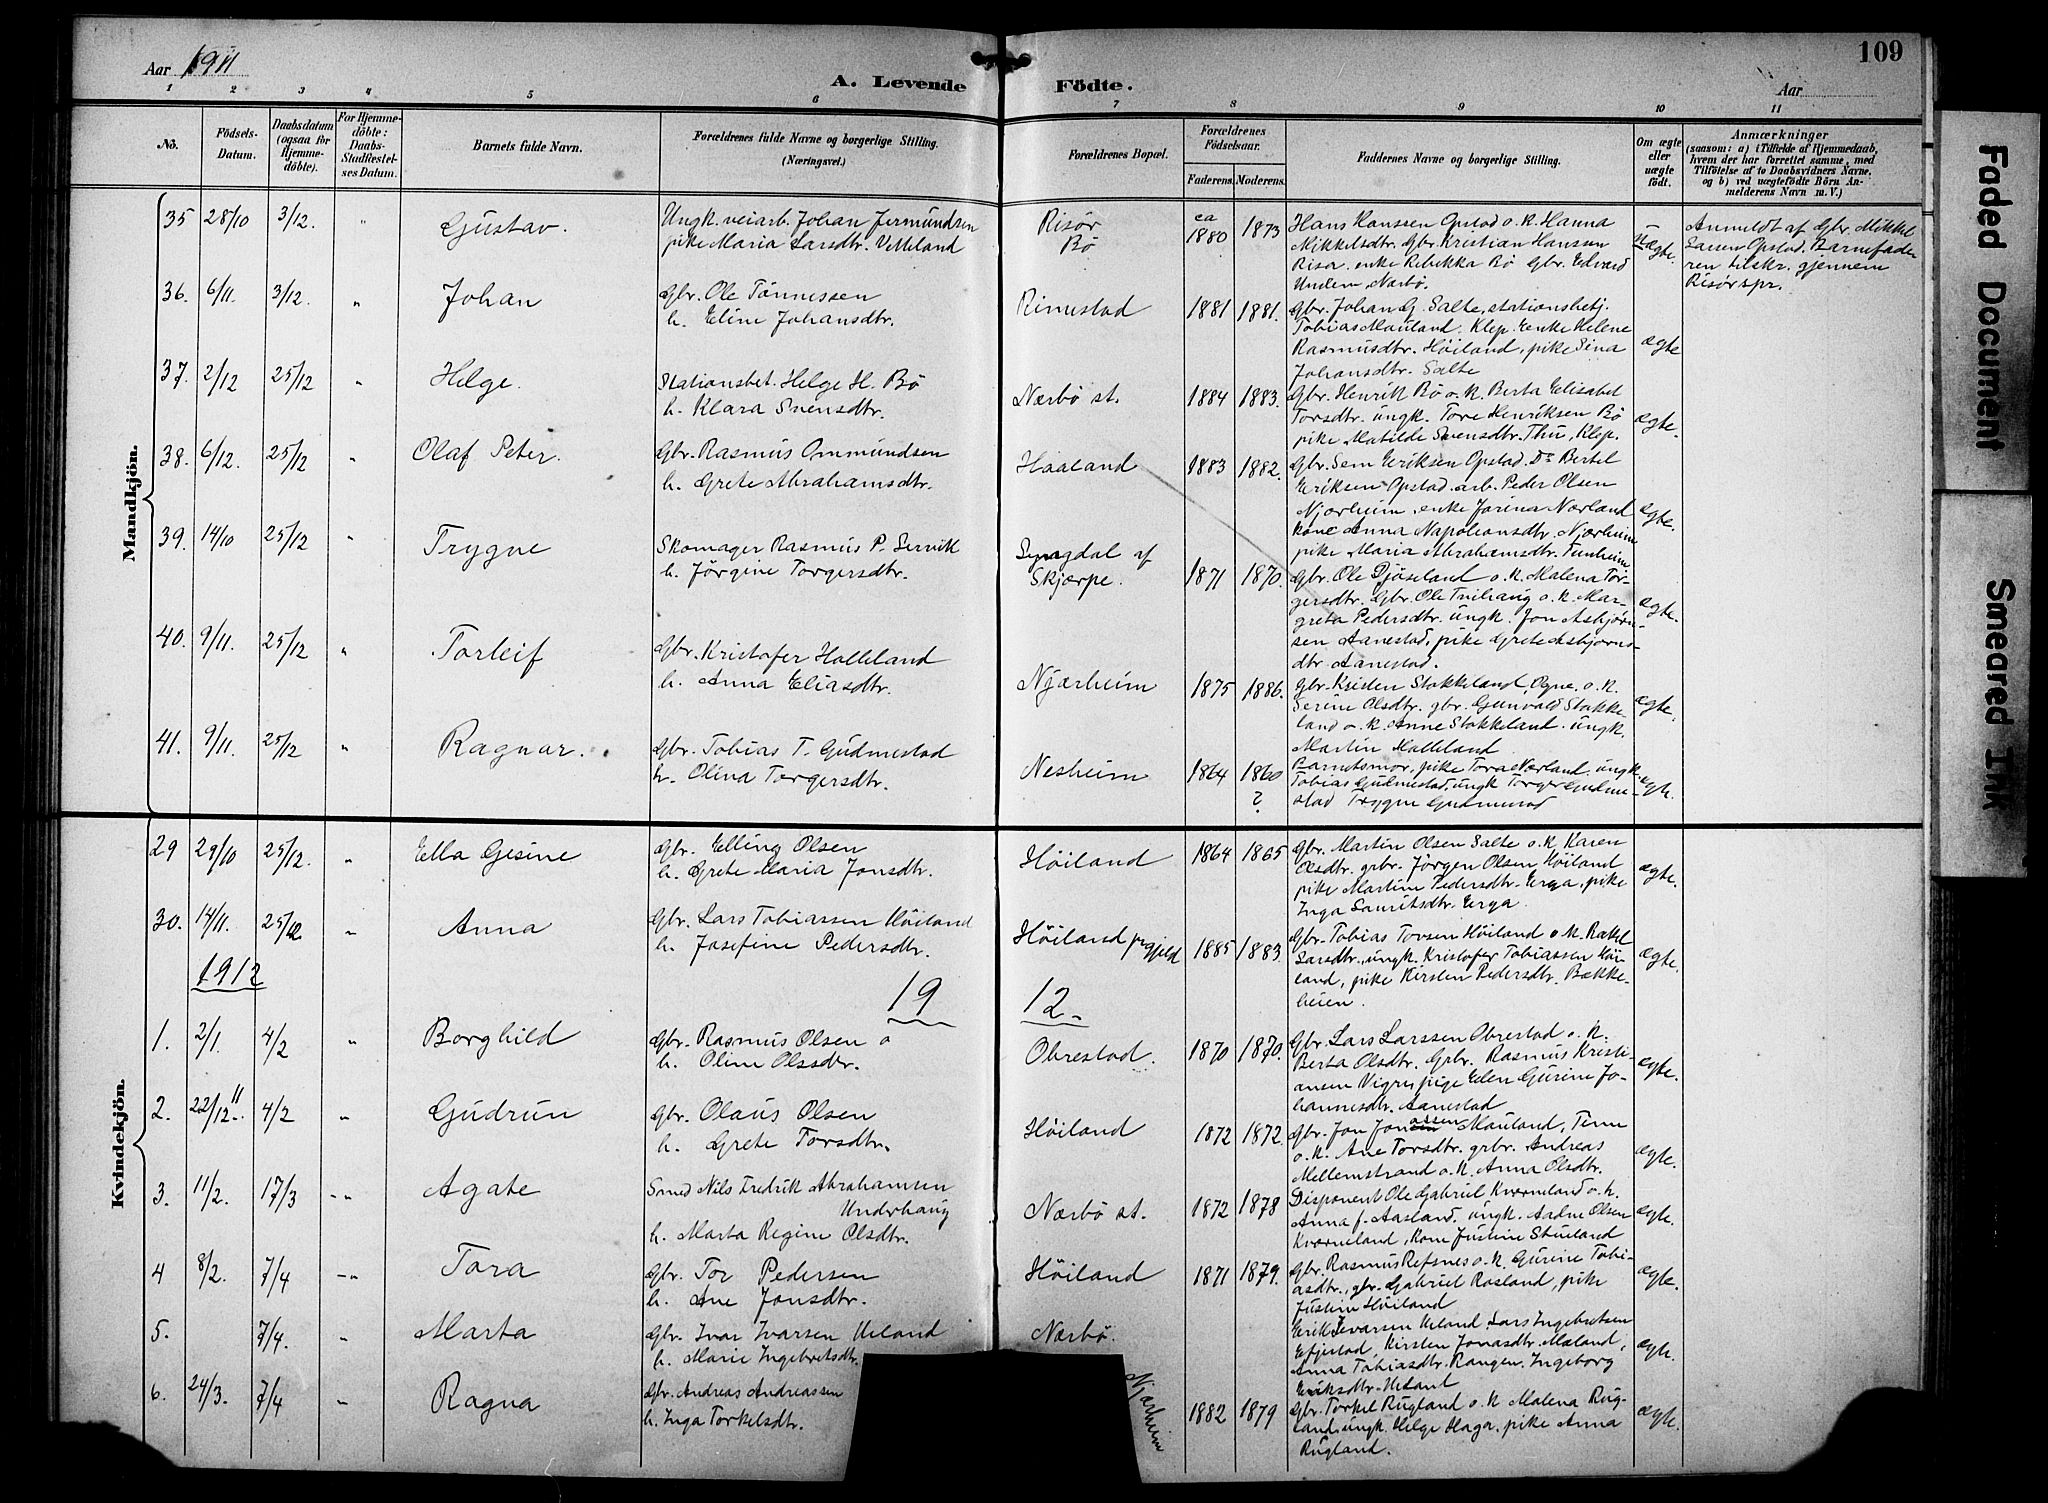 109
Aar 1911
A. Levende Födte.
Aar
1 2 3 4 5 6 7 8 9 10 11
No.
Födsels-Datum.
Daabsdatum (ogsaa for Hjemmedöbte).
For Hjemmedöbte: Daabs-Stadfestelses Datum.
Barnets fulde Navn.
Forældrenes fulde Navne og borgerlige Stilling. (Næringsvei.)
Forældrenes Bopæl.
Forældrenes Födselsaar.
Faderens. Moderens.
Faddernes Navne og borgerlige Stilling.
Om ægte eller uægte födt.
Anmærkninger
(saasom: a) i Tilfælde af Hjemmedaab,
hvem der har forrettet samme, med
Tilföielse af to Daabsvidners Navne,
og b) ved uægtefödte Börn An-
melderens Navn m. V.)
Mandkjön.
35 28/10 3/12. " Gustav. Ungk. veiarb. Johan Jermundsen
pike Maria Larsdtr. Vetteland
Risör
Bö
ca 1880 1873
Hans Hanssen Opstad o. K. Hanna
Mikkelsdtr. Gbr. Kristian Hanssen
Risa. enke Rebekka Bö Gbr. Edvard
Undem, Nærbö.
Uægte.
Anmeldt af Gbr. Mikkel
Larsen Opstad. Barnefade
ren tilskr. gjennem
Risörspr.
36. 6/11. 3/12. " Johan Gbr. Ole Tönnessen
h. Eline Johansdtr.
Rimestad 1881 1881.
Gbr. Johan G. Salte, stationsbetj.
Tobias Mauland. Klep. Enke Helene
Rasmusdtr. Höiland, pike Sina
Johansdtr. Salte
ægte
37. 2/12 25/12 " Helge. Stationsbet. Helge H. Bö
h. Klara Svensdtr.
Nærbö st. 1884 1883.
Gbr. Henrik Bö o. K. Berta Elisabet
Torsdtr. ungk. Tore Henriksen Bö
pike Matilde Svensdtr. Thu, Klep.
ægte.
38. 6/12. 25/12 " Olaf Peter. Gbr. Rasmus Ommundsen
h. Grete Abrahamsdtr.
Haaland 1883 1882.
Gbr. Sem Eriksen Opstad. Do Bertel
Eriksen Opstad. arb. Peder Olsen
Njærheim, enke Jorina Nærland
kone Anna Napoleonsdtr. Njærheim
pike Maria Abrahamsdtr. Tunheim
ægte.
39. 14/10 25/12 " Trygve Skomager Rasmus P. Servik
h. Jörgine Torgersdtr.
Lyngdal af
Skjærpe.
1871 1870.
Gbr. Ole Djöseland o. K. Malena Tor-
gersdtr. Gbr. Ole Tvihaug o. K. Mar-
greta Pedersdtr. ungk. Jon Asbjörn-
sen Aanestad, pike Grete Asbjörns-
dtr Aanestad.
ægte.
40. 9/11. 25/12 " Torleif Gbr. Kristofer Holleland
h. Anna Eliasdtr.
Njærheim 1875 1886.
Gbr. Kristen Stokkeland, Ogne. o. K.
Serine Olsdtr. gbr. Gunvald Stokke-
land o. K. Anne Stokkeland. ungk.
Martin Holleland
ægte.
41. 9/11. 25/12 " Ragnar. Gbr. Tobias T. Gudmestad
h. Olina Torgersdtr.
Nesheim 1864 1860 ?
Barnetsmor, pike Tora Nærland. ungk.
Tobias Gudmestad, ungk Torger Gudme-
stad Trygve Gudmestad
ægte.
Kvindekjön.
29 29/10 25/12. " Ella Gesine Gbr. Elling Olsen
h. Grete Maria Jonsdtr.
Höiland 1864 1865
Gbr. Martin Olsen Salte o. K Karen
Olsdtr. grbr. Jörgen Olsen Höiland
pike Martine Pedersdtr. Erga, pike
Inga Lauritsdtr. Erga.
ægte.
30. 14/11. 25/12. " Anna Gbr. Lars Tobiassen Höiland
h. Josefine Pedersdtr.
Höiland prgjeld 1885 1883.
Gbr. Tobias Tovsen Höiland o. K. Rakel
Larsdtr., ungk. Kristofer Tobiassen Höi-
land, pike Kirsten Pedersdtr. Bække-
heien.
ægte.
1912 19 12.
1. 2/1. 4/2 " Borghild Gbr. Rasmus Olsen
h. Oline Olssdtr.
Obrestad. 1870 1870.
Gbr. Lars Larssen Obrestad o. K.
Berta Olsdtr. Grbr. Rasmus Kristi-
ansen Vigre, pige Elen Gurine Jo-
hannesdtr. Aanestad
ægte.
2. 22/12 11. 4/2 " Gudrun Gbr. Olaus Olsen
h. Grete Torsdtr.
Höiland 1872 1872.
Gbr. Jon Jonassen Mauland, Time
o. K. Ane Torsdtr. grbr. Andreas
Mellemstrand o. K. Anna Olsdtr.
ægte.
3. 11/2. 17/3 " Agate Smed Nils Fredrik Abrahamsen
Underhaug
h. Marta Regine Olsdtr.
Nærbö st. 1872 1878
Disponent Ole Gabriel Kværneland o. h.
Anna f. Aasland, ungk. Aadne Olsen
Kværneland, kone Justine Stuuland
ægte.
4 8/2. 7/4 " Tora Gbr. Tor Pedersen
h. Ane Jonsdtr.
Höiland 1871 1879.
Gbr. Rasmus Refsnes o. K. Gurine Tobi-
asdtr., gbr. Gabriel Rosland, pike
Justine Höiland
ægte.
5. 7/4. " Marta Gbr. Ivar Ivarsen Ueland
h. Marie Ingebretsdtr.
Nærbö.
Erik Ivarsen Ueland, Lars Ingebretsen
Efjestad, Kirsten Jonasdtr. Maland,
Anna Tobiasdtr. Rangen. Ingeborg
Eriksdtr. Ueland
ægte.
6. 24/3. 7/4 " Ragna Gbr. Andreas Andreassen
h. Inga Torkelsdtr.
Njærheim 1882 1879
Gbr. Torkel Rugland o. K Malena Rug-
land, ungk. Helge Haga, pike Anna
Rugland.
ægte.
Faded Document
Smeared Ink